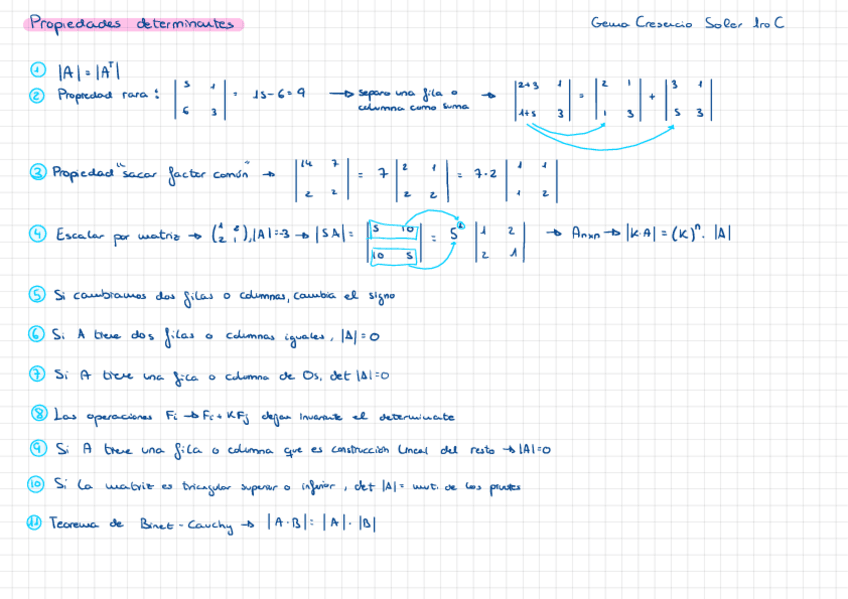 Propiedades determinantes
Gema Cresencio Soler 1ro C
① |A|=|Aᵀ|
② Propiedad rara: |5 1; 6 3| = 15-6=9 → separo una fila o columna como suma → |2+3 1; 1+5 3| = |2 1; 1 3| + |3 1; 5 3|
③ Propiedad "sacar factor común" → |14 7; 2 2| = 7 |2 1; 2 2| = 7·2 |1 1; 1 2|
④ Escalar por matriz → (1 2; 2 1), |A|=-3 → |5A| = |5 10; 10 5| = 5² |1 2; 2 1| → Anxn → |K·A| = (K)ⁿ · |A|
⑤ Si cambiamos dos filas o columnas, cambia el signo
⑥ Si A tiene dos filas o columnas iguales, |A|=0
⑦ Si A tiene una fila o columna de 0s, det |A|=0
⑧ Las operaciones Fi → Fi + KFj dejan invariante el determinante
⑨ Si A tiene una fila o columna que es construcción lineal del resto → |A|=0
⑩ Si la matriz es triangular superior o inferior, det |A| = mut. de los
⑪ Teorema de Binet-Cauchy → |A·B| = |A|·|B|